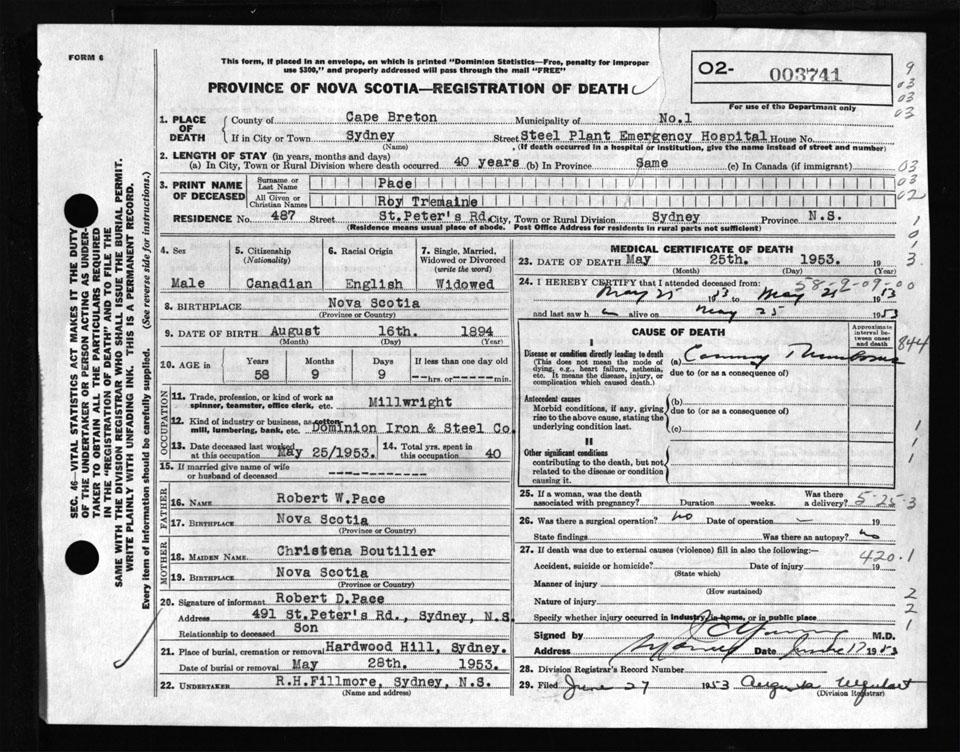 FORM 6
This form, if placed in an envelope, on which is printed "Dominion Statistics—Free, penalty for improper
use $300," and properly addressed will pass through the mail "FREE"
PROVINCE OF NOVA SCOTIA—REGISTRATION OF DEATH
O2- 003741
For use of the Department only
9
03
03
03
1. PLACE OF DEATH
County of Cape Breton Municipality of No.1
If in City or Town Sydney Street Steel Plant Emergency Hospital House No.
(Name) (If death occurred in a hospital or institution, give the name instead of street and number)
2. LENGTH OF STAY (in years, months and days)
(a) In City, Town or Rural Division where death occurred 40 years (b) In Province Same (c) In Canada (if immigrant)
03
03
02
3. PRINT NAME OF DECEASED
Surname or Last Name Pace
All Given or Christian Names Roy Tremaine
RESIDENCE No. 487 Street St.Peter's Rd. City, Town or Rural Division Sydney Province N.S.
(Residence means usual place of abode. Post Office Address for residents in rural parts not sufficient)
1
0
1
3.
4. Sex
Male
5. Citizenship
(Nationality)
Canadian
6. Racial Origin
English
7. Single, Married,
Widowed or Divorced
(write the word)
Widowed
8. BIRTHPLACE Nova Scotia
(Province or Country)
9. DATE OF BIRTH August 16th. 1894
(Month) (Day) (Year)
10. AGE in
Years Months Days If less than one day old
58 9 9 --hrs. or --min.
OCCUPATION
11. Trade, profession, or kind of work as
spinner, teamster, office clerk, etc. Millwright
12. Kind of industry or business, as cotton-
mill, lumbering, bank, etc. Dominion Iron & Steel Co.
13. Date deceased last worked
at this occupation May 25/1953.
14. Total yrs. spent in
this occupation 40
15. If married give name of wife
or husband of deceased -----
FATHER
16. NAME Robert W.Pace
17. BIRTHPLACE Nova Scotia
(Province or Country)
MOTHER
18. MAIDEN NAME Christena Boutilier
19. BIRTHPLACE Nova Scotia
(Province or Country)
20. Signature of informant Robert D.Pace
Address 491 St.Peter's Rd., Sydney, N.S.
Relationship to deceased Son
21. Place of burial, cremation or removal Hardwood Hill, Sydney.
Date of burial or removal May 28th. 1953.
22. UNDERTAKER R.H.Fillmore, Sydney, N.S.
(Name and address)
MEDICAL CERTIFICATE OF DEATH
23. DATE OF DEATH May 25th. 1953. 19
(Month) (Day) (Year)
58-9-09-00
24. I HEREBY CERTIFY that I attended deceased from:
May 25 1953 to May 25 1953
and last saw h alive on May 25 1953
CAUSE OF DEATH
Approximate
interval between
onset
and death
844
I
Disease or condition directly leading to death
(This does not mean the mode of
dying, e.g., heart failure, asthenia,
etc. It means the disease, injury, or
complication which caused death.)
(a) Coronary Thrombosis
due to (or as a consequence of)
Antecedent causes
Morbid conditions, if any, giving
rise to the above cause, stating the
underlying condition last.
(b)
due to (or as a consequence of)
(c)
II
Other significant conditions
contributing to the death, but not
related to the disease or condition
causing it.
1
1
1
25. If a woman, was the death
associated with pregnancy? Duration weeks. Was there
a delivery?
5-25-3
26. Was there a surgical operation? no Date of operation — 19
State findings Was there an autopsy? no
27. If death was due to external causes (violence) fill in also the following:—
420.1
Accident, suicide or homicide? Date of injury 19
(State which)
Manner of injury
(How sustained)
Nature of injury
2
2
1
Specify whether injury occurred in industry, in home, or in public place
Signed by M.D.
Address Sydney Date June 17 1953
28. Division Registrar's Record Number
29. Filed June 27 1953 Augusta Urquhart
(Division Registrar)
SEC. 46—VITAL STATISTICS ACT MAKES IT THE DUTY
OF THE UNDERTAKER OR PERSON ACTING AS UNDER-
TAKER TO OBTAIN ALL THE PARTICULARS REQUIRED
IN THE "REGISTRATION OF DEATH" AND TO FILE THE
SAME WITH THE DIVISION REGISTRAR WHO SHALL ISSUE THE BURIAL PERMIT.
WRITE PLAINLY WITH UNFADING INK. THIS IS A PERMANENT RECORD.
Every item of information should be carefully supplied. (See reverse side for instructions.)